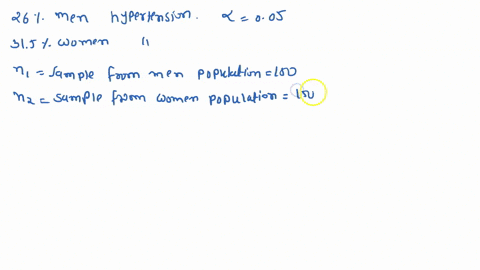 26% men hypertension. α = 0.05
31.5% women "
n₁ = sample from men population = 100
n₂ = sample from women population = 100